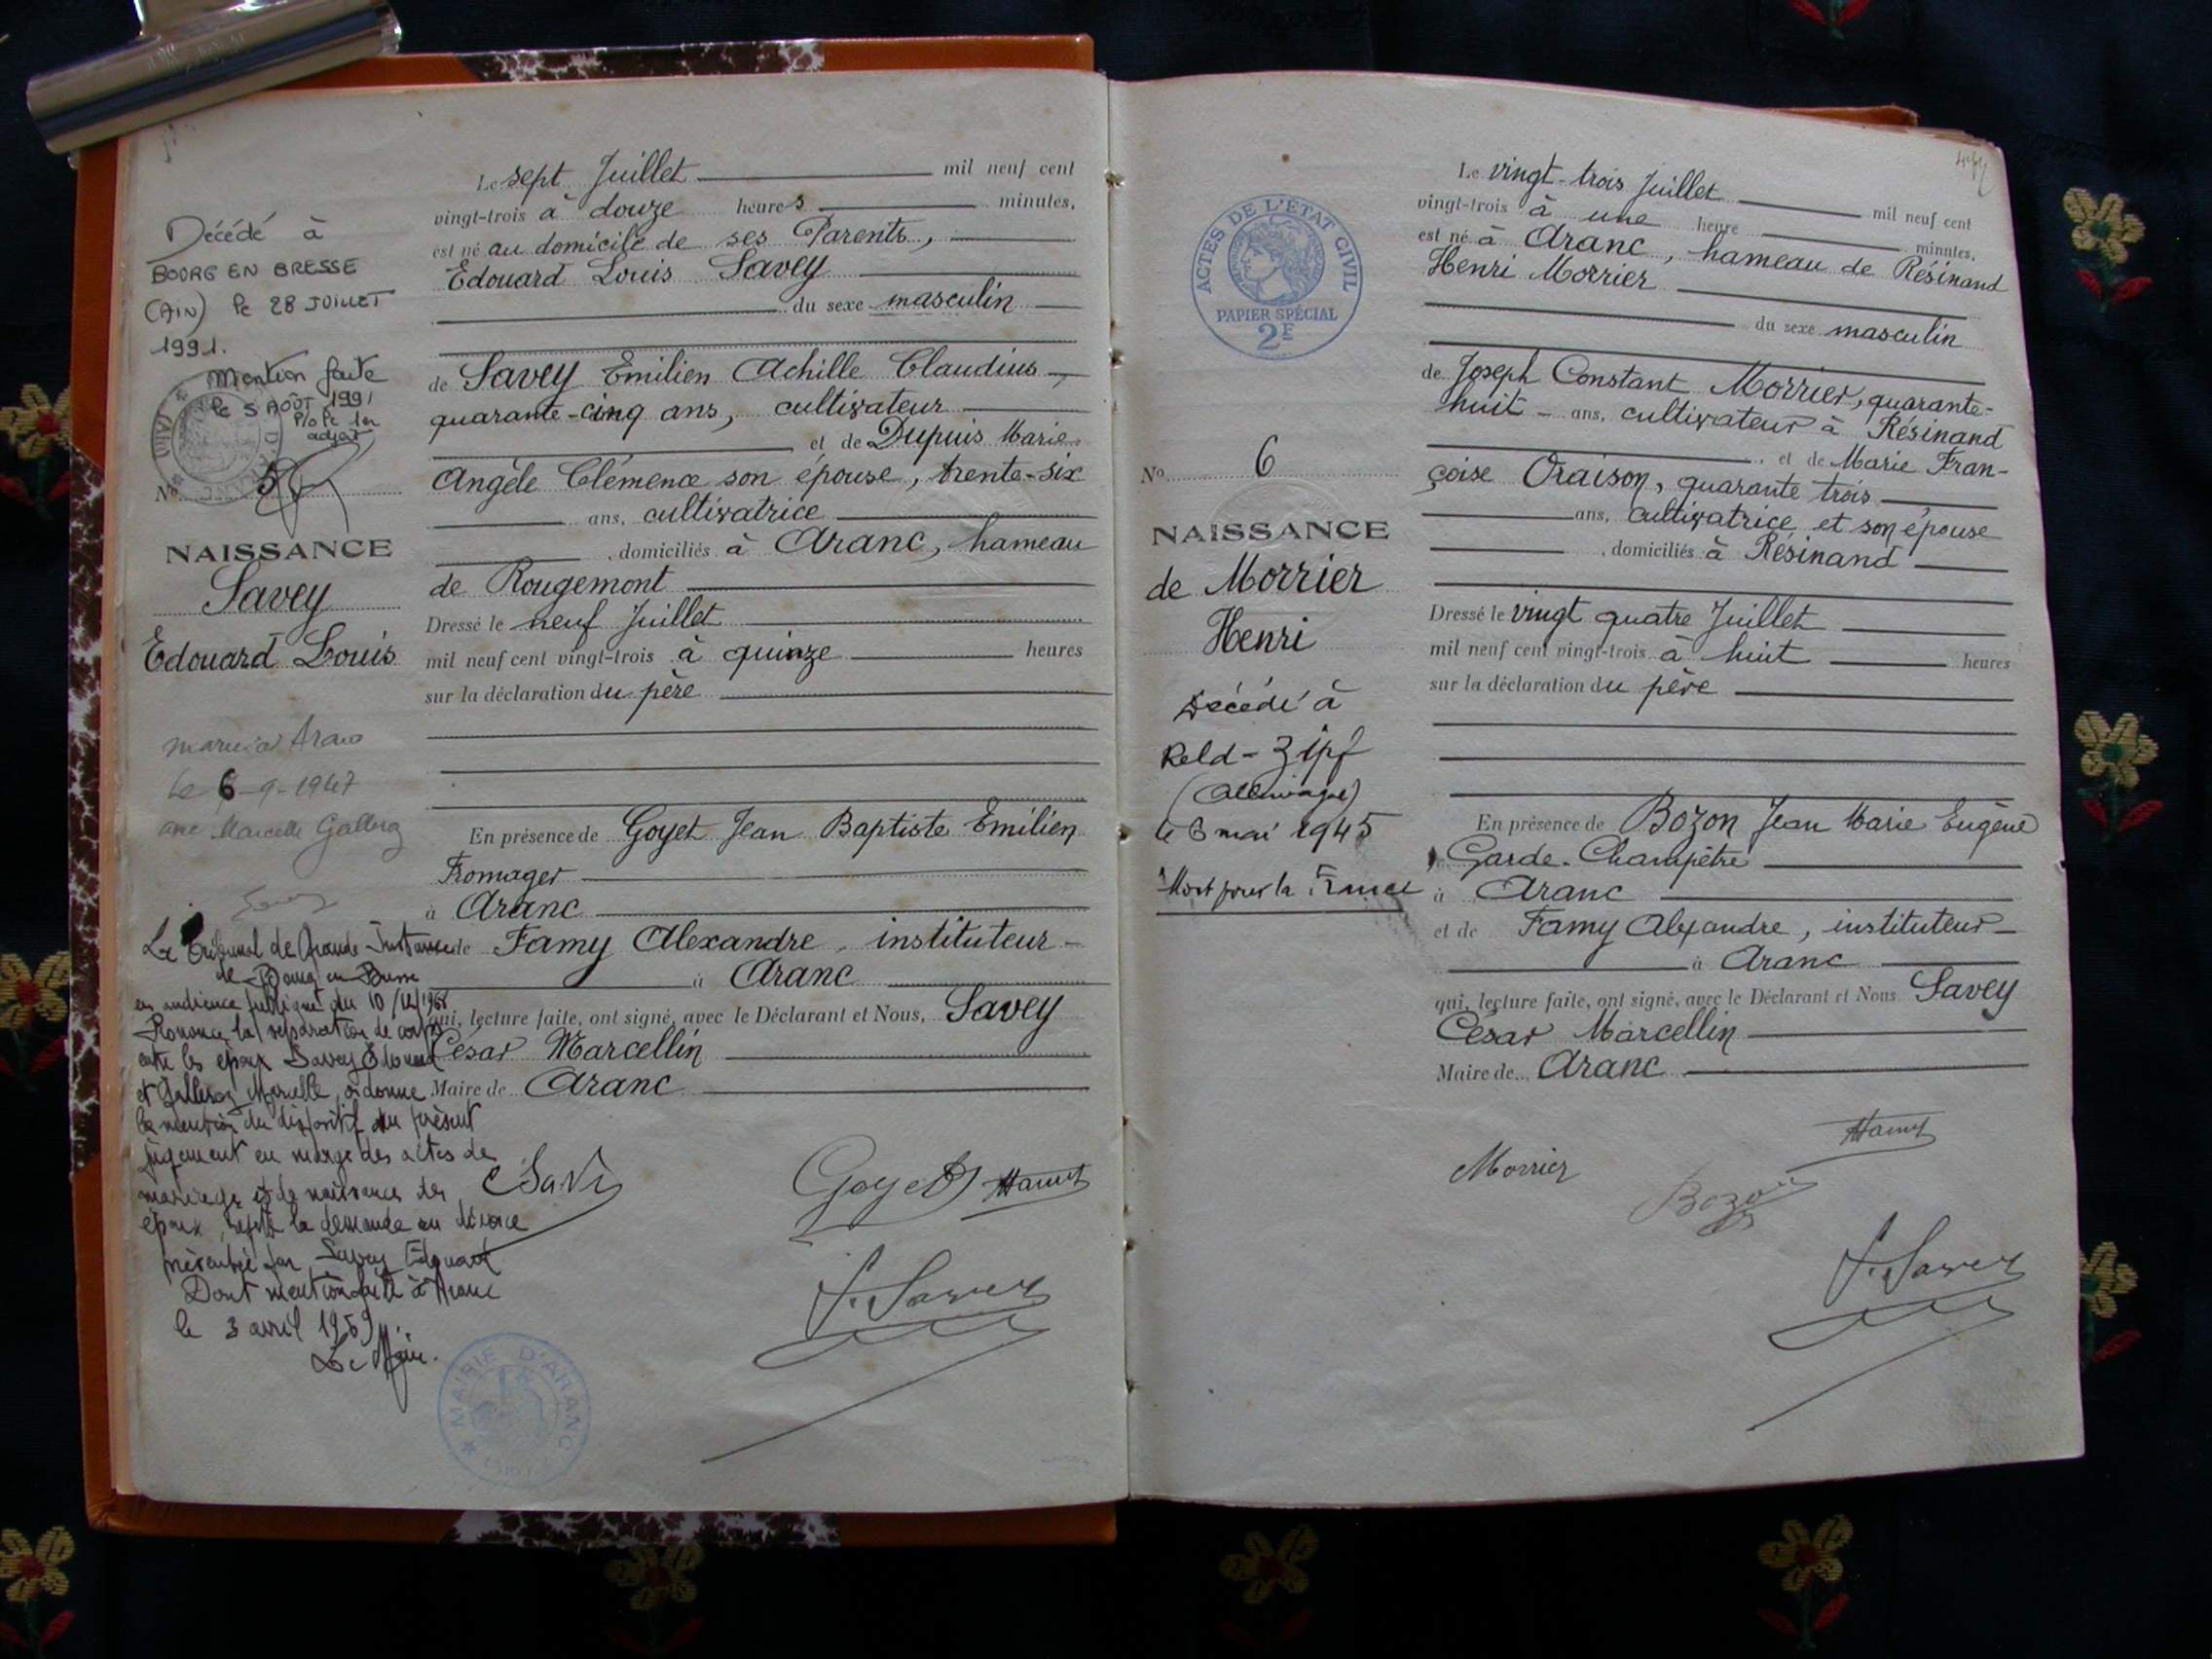 Le sept Juillet mil neuf cent
vingt-trois à douze heures minutes,
est né au domicile de ses Parents,
Edouard Louis Savey
du sexe masculin
de Savey Emilien Achille Claudius
quarante-cinq ans, cultivateur
et de Dupuis Marie
Angèle Clémence son épouse, trente-six
ans, cultivatrice
domiciliés à Aranc, hameau
de Rougemont
Dressé le neuf Juillet
mil neuf cent vingt-trois à quinze heures
sur la déclaration du père
En présence de Goyet Jean Baptiste Emilien
Fromager
à Aranc
et de Famy Alexandre, instituteur
à Aranc
qui, lecture faite, ont signé, avec le Déclarant et Nous, Savey
César Marcellin
Maire de Aranc
Goyet
Décédé à
BOURG EN BRESSE
(AIN) le 28 JUILLET
1991.
Mention faite
le 5 AOÛT 1991
No 5
NAISSANCE
Savey
Edouard Louis
marié à Aranc
le 6-9-1947
Le Tribunal de Grande Instance
de Bourg en Bresse
en audience publique du 10/12/1968
Prononce la séparation de corps
entre les époux Savey Edouard
et Marcelle, ordonne
la mention du dispositif du présent
jugement en marge des actes de
mariage et de naissance des
époux, la demande en divorce
présentée par Savey Edouard
Dont mention faite à Aranc
le 3 avril 1969
Le Maire.
MAIRIE D'ARANC
ACTES DE L'ÉTAT CIVIL
PAPIER SPÉCIAL
2F
No 6
NAISSANCE
de Morrier
Henri
Décédé à
Redl-Zipf
(Allemagne)
le 6 mai 1945
Mort pour la France
Le vingt-trois Juillet mil neuf cent
vingt-trois à une heure minutes,
est né à Aranc, hameau de Résinand
Henri Morrier
du sexe masculin
de Joseph Constant Morrier, quarante-
huit ans, cultivateur à Résinand
et de Marie Fran-
çoise Oraison, quarante trois
ans, cultivatrice et son épouse
domiciliés à Résinand
Dressé le vingt quatre Juillet
mil neuf cent vingt-trois à huit heures
sur la déclaration du père
En présence de Bozon Jean Marie Eugène
Garde-Champêtre
à Aranc
et de Famy Alexandre, instituteur
à Aranc
qui, lecture faite, ont signé, avec le Déclarant et Nous Savey
César Marcellin
Maire de Aranc
Morrier
Bozon